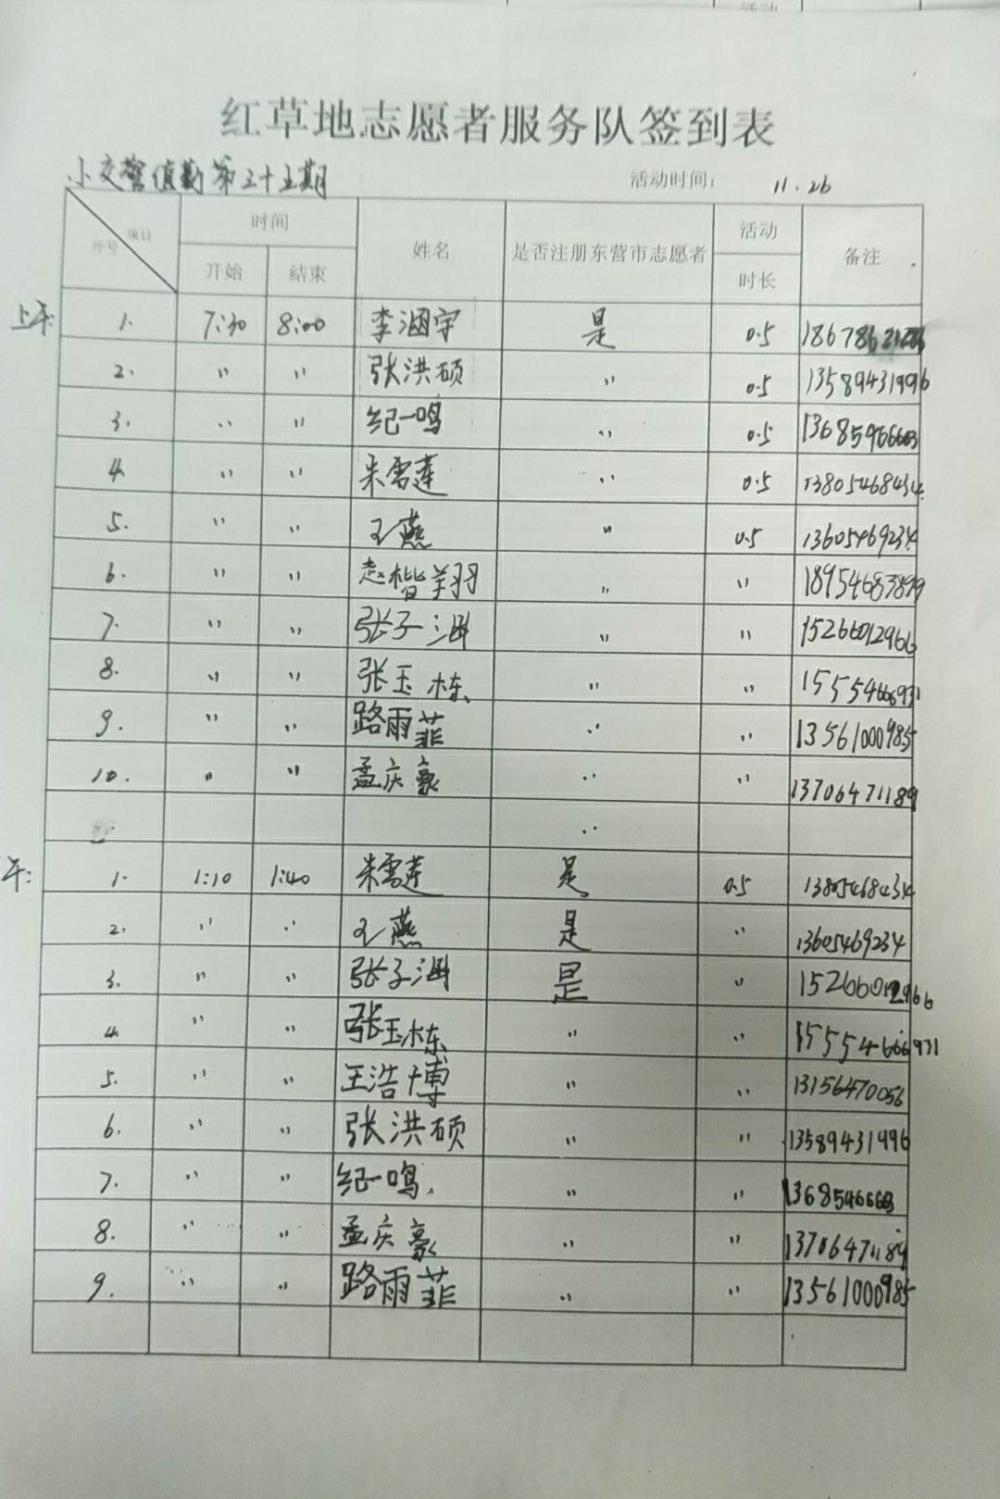 红草地志愿者服务队签到表
小交警值勤第三十五期 活动时间： 11.26
序号 项目 时间 姓名 是否注册东营市志愿者 活动 备注
开始 结束 时长
上午: 1. 7:30 8:00 李涵宇 是 0.5
2. 〃 〃 张洪硕 〃 0.5 13589431996
3. 〃 〃 纪一鸣 〃 0.5
4. 〃 〃 朱雪莲 〃 0.5 13805468434
5. 〃 〃 王燕 〃 0.5 13605469234
6. 〃 〃 赵楷翔 〃 〃 18954683899
7. 〃 〃 张子涵 〃 〃 15266012966
8. 〃 〃 张玉栋 〃 〃 15554666931
9. 〃 〃 路雨菲 〃 〃 13561000985
10. 〃 〃 孟庆豪 〃 〃 13706471189
〃
午: 1. 1:10 1:40 朱雪莲 是 0.5 13805468434
2. 〃 〃 王燕 是 〃 13605469234
3. 〃 〃 张子涵 是 〃 15266012966
4. 〃 〃 张玉栋 〃 〃 15554666931
5. 〃 〃 王浩博 〃 〃 13156470056
6. 〃 〃 张洪硕 〃 〃 13589431996
7. 〃 〃 纪一鸣 〃 〃
8. 〃 〃 孟庆豪 〃 〃 13706471189
9. 〃 〃 路雨菲 〃 〃 13561000985